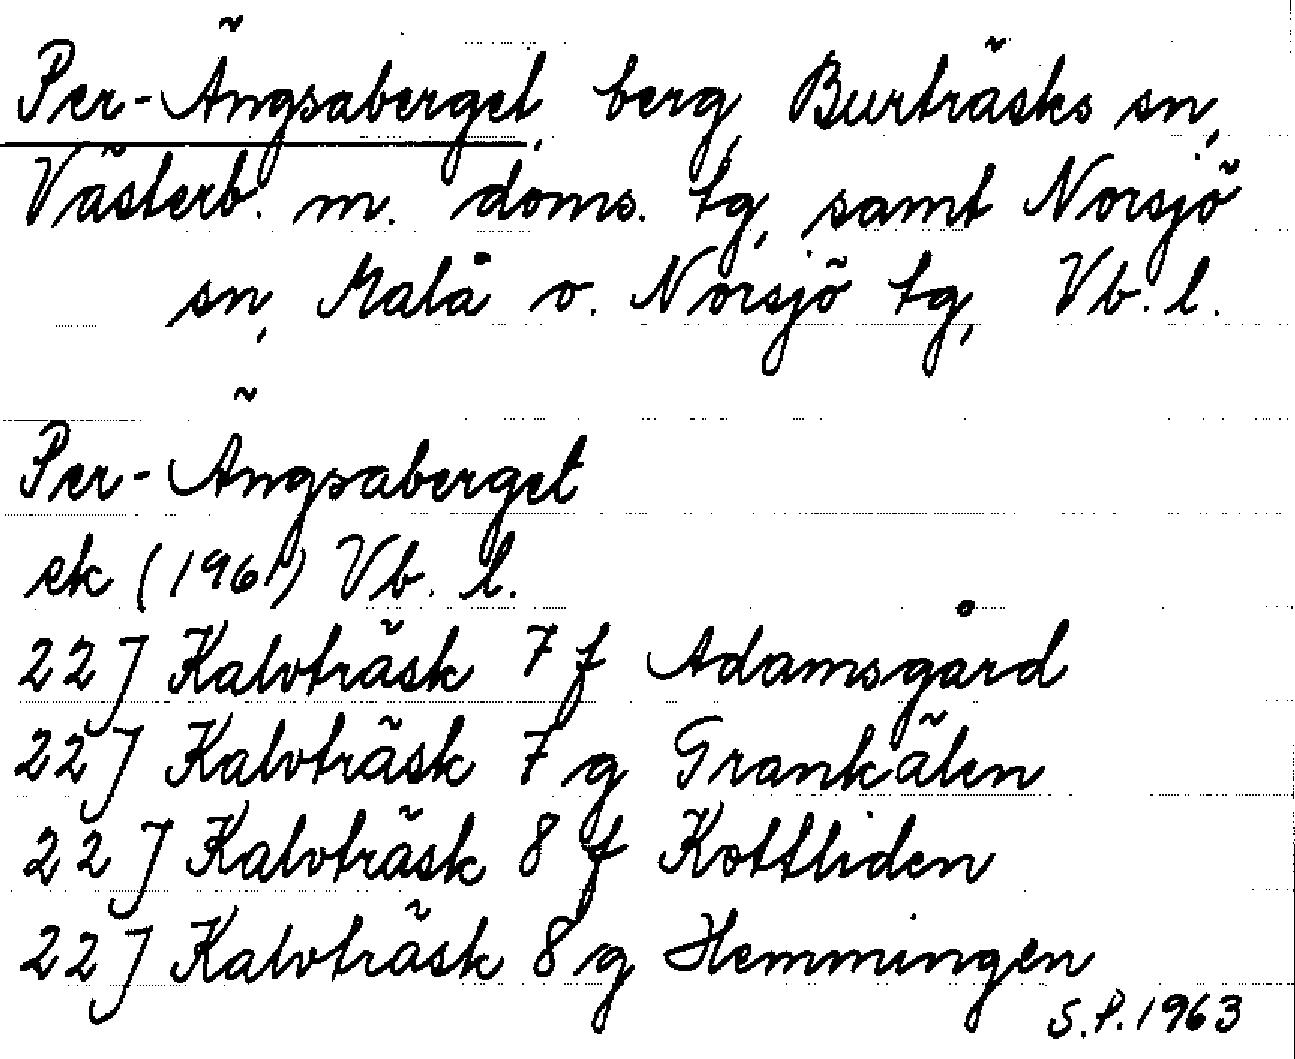 Per-Ängsaberget, berg, Burträsks sn,
Västerb. m. doms. tg, samt Norsjö
sn, Malå o. Norsjö tg, Vb. l.
Per-Ängsaberget
ek (1961) Vb. l.
22 J Kalvträsk 7 f Adamsgård
22 J Kalvträsk 7 g Grankälen
22 J Kalvträsk 8 f Kottliden
22 J Kalvträsk 8 g Hemmingen
S.P. 1963